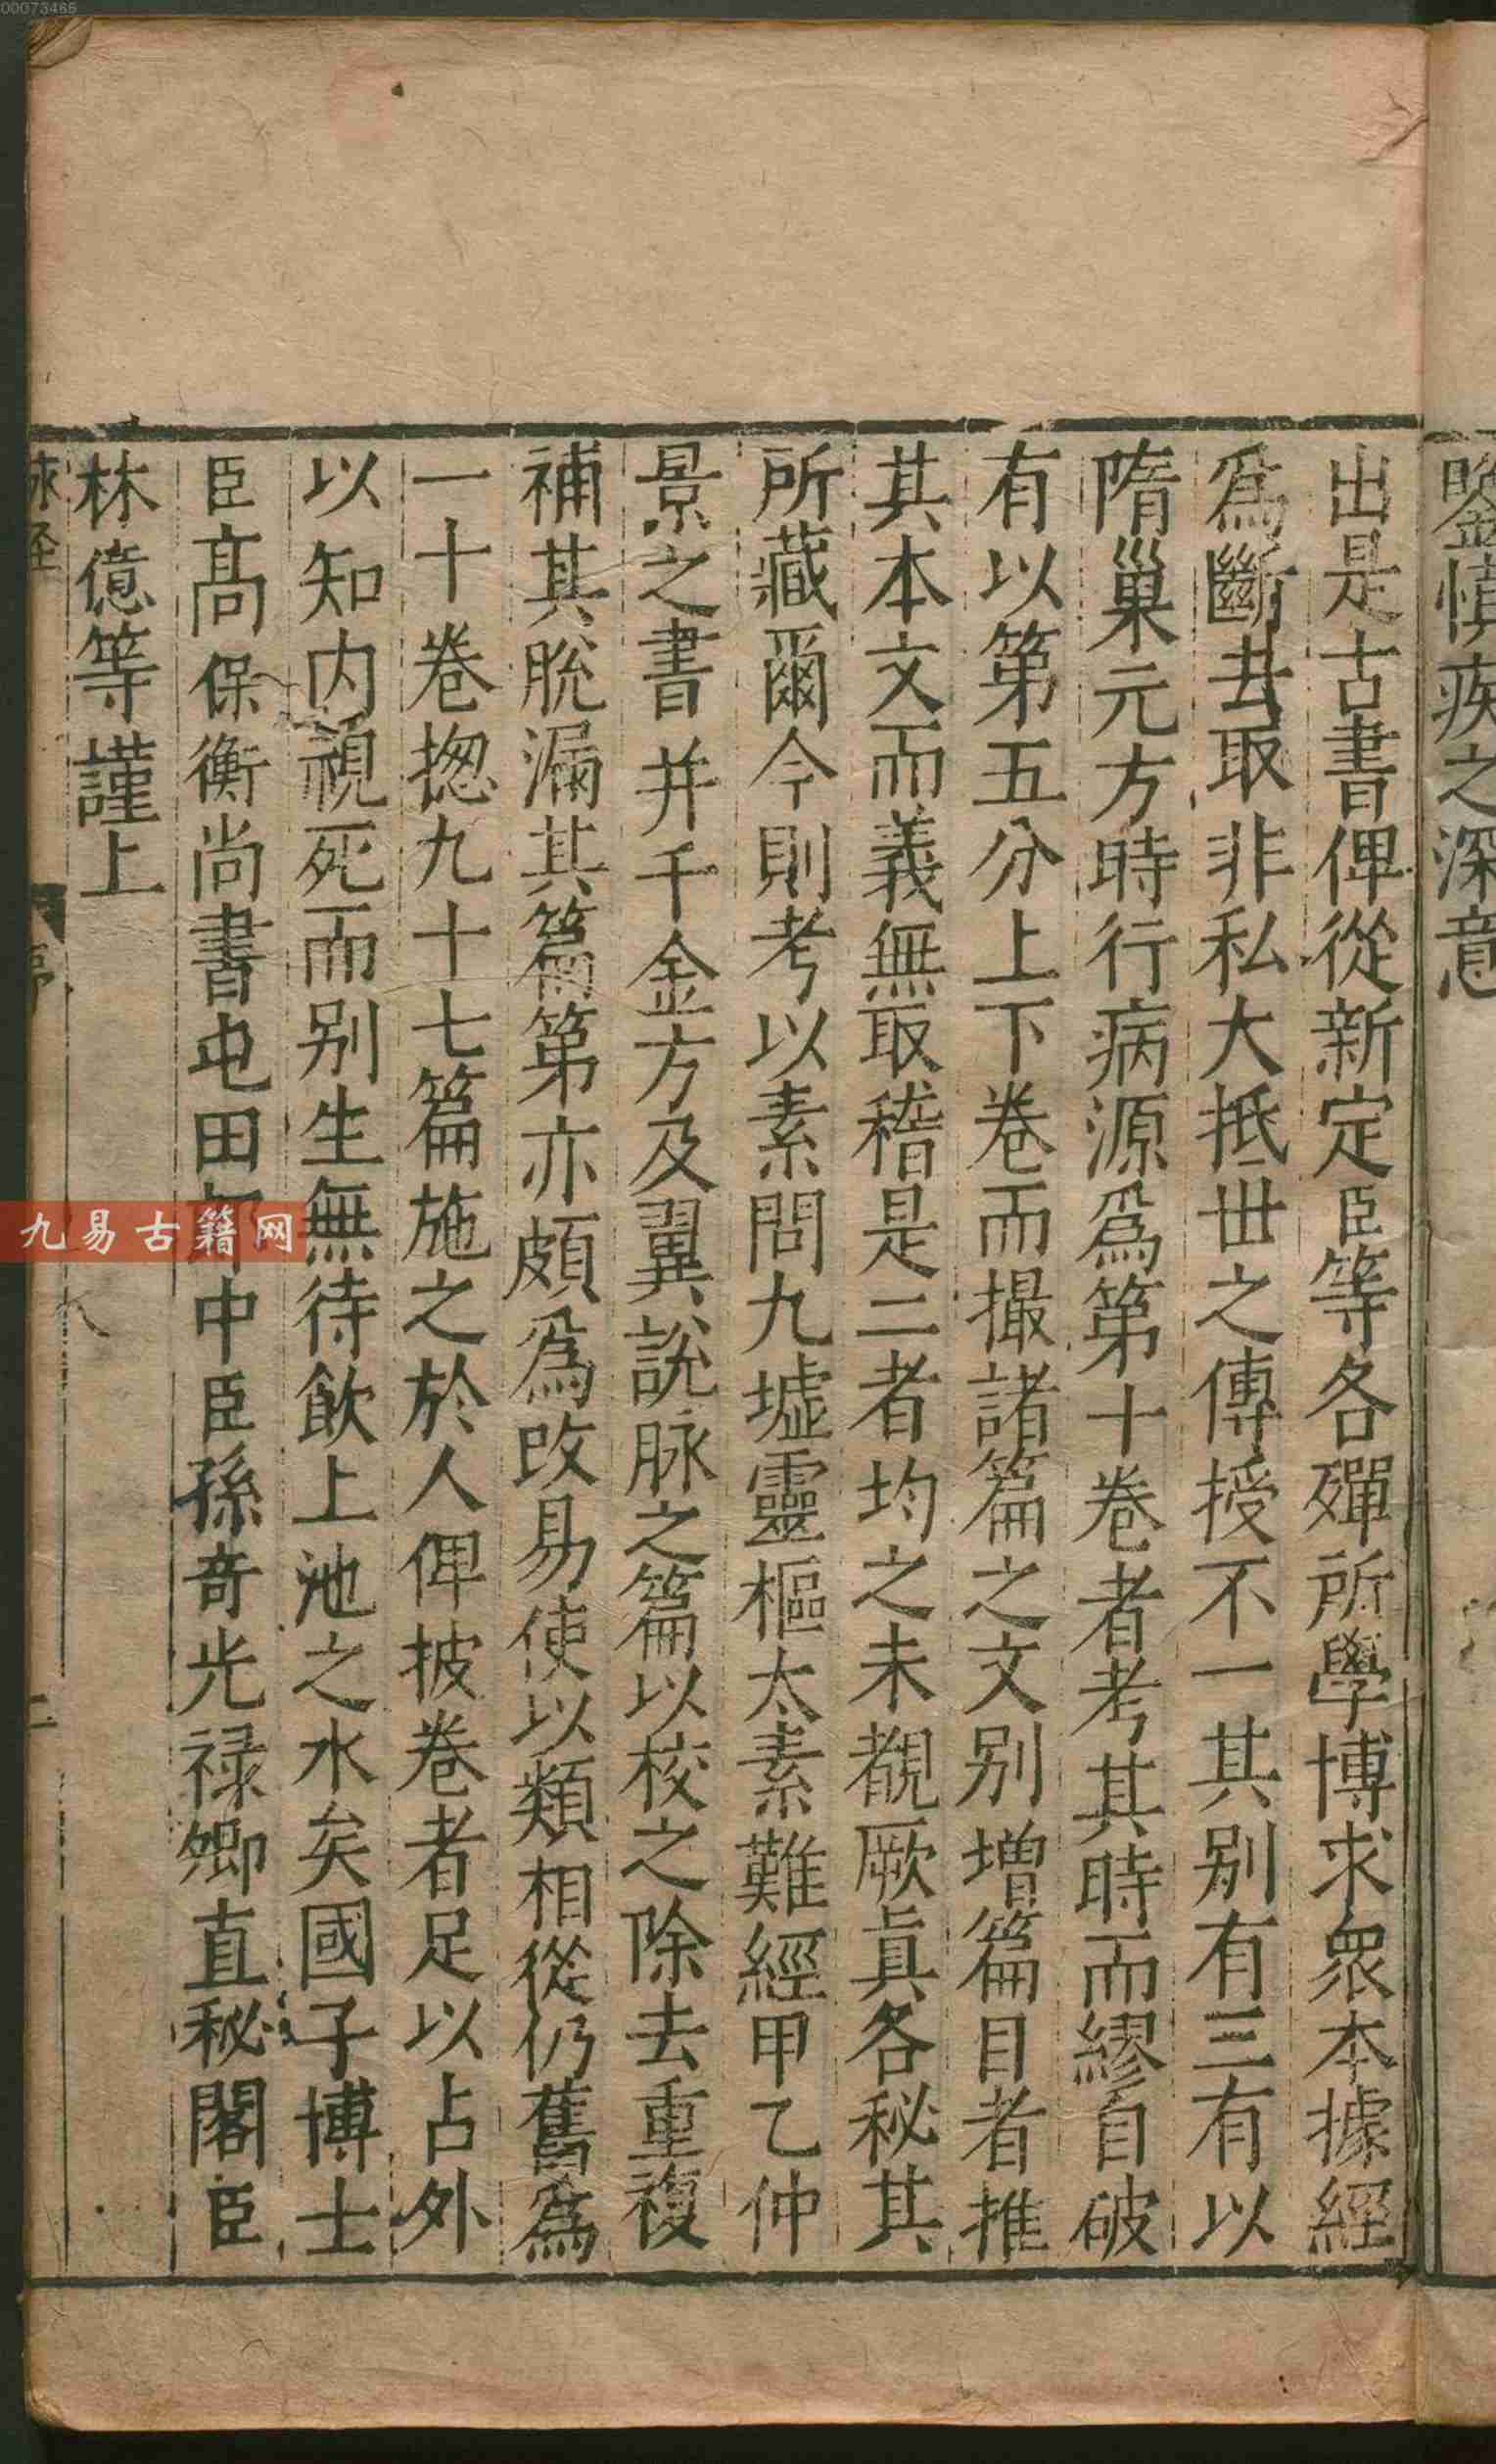 00073466
鑒慎疾之深意
出是古書俾從新定臣等各殫所學博求衆本據經
爲斷去取非私大抵世之傳授不一其别有三有以
隋巢元方時行病源爲第十卷者考其時而繆自破
有以第五分上下卷而撮諸篇之文别增篇目者推
其本文而義無取稽是二者均之未覩厥眞各秘其
所藏爾今則考以素問九墟靈樞太素難經甲乙仲
景之書并千金方及翼說脉之篇以校之除去重複
補其脫漏其篇第亦頗爲改易使以類相從仍舊爲
一十卷揔九十七篇施之於人俾披卷者足以占外
以知内視死而别生無待飲上池之水矣國子博士
臣高保衡尚書屯田郎中臣孫奇光禄卿直秘閣臣
林億等謹上
脉经
序
二
九易古籍网